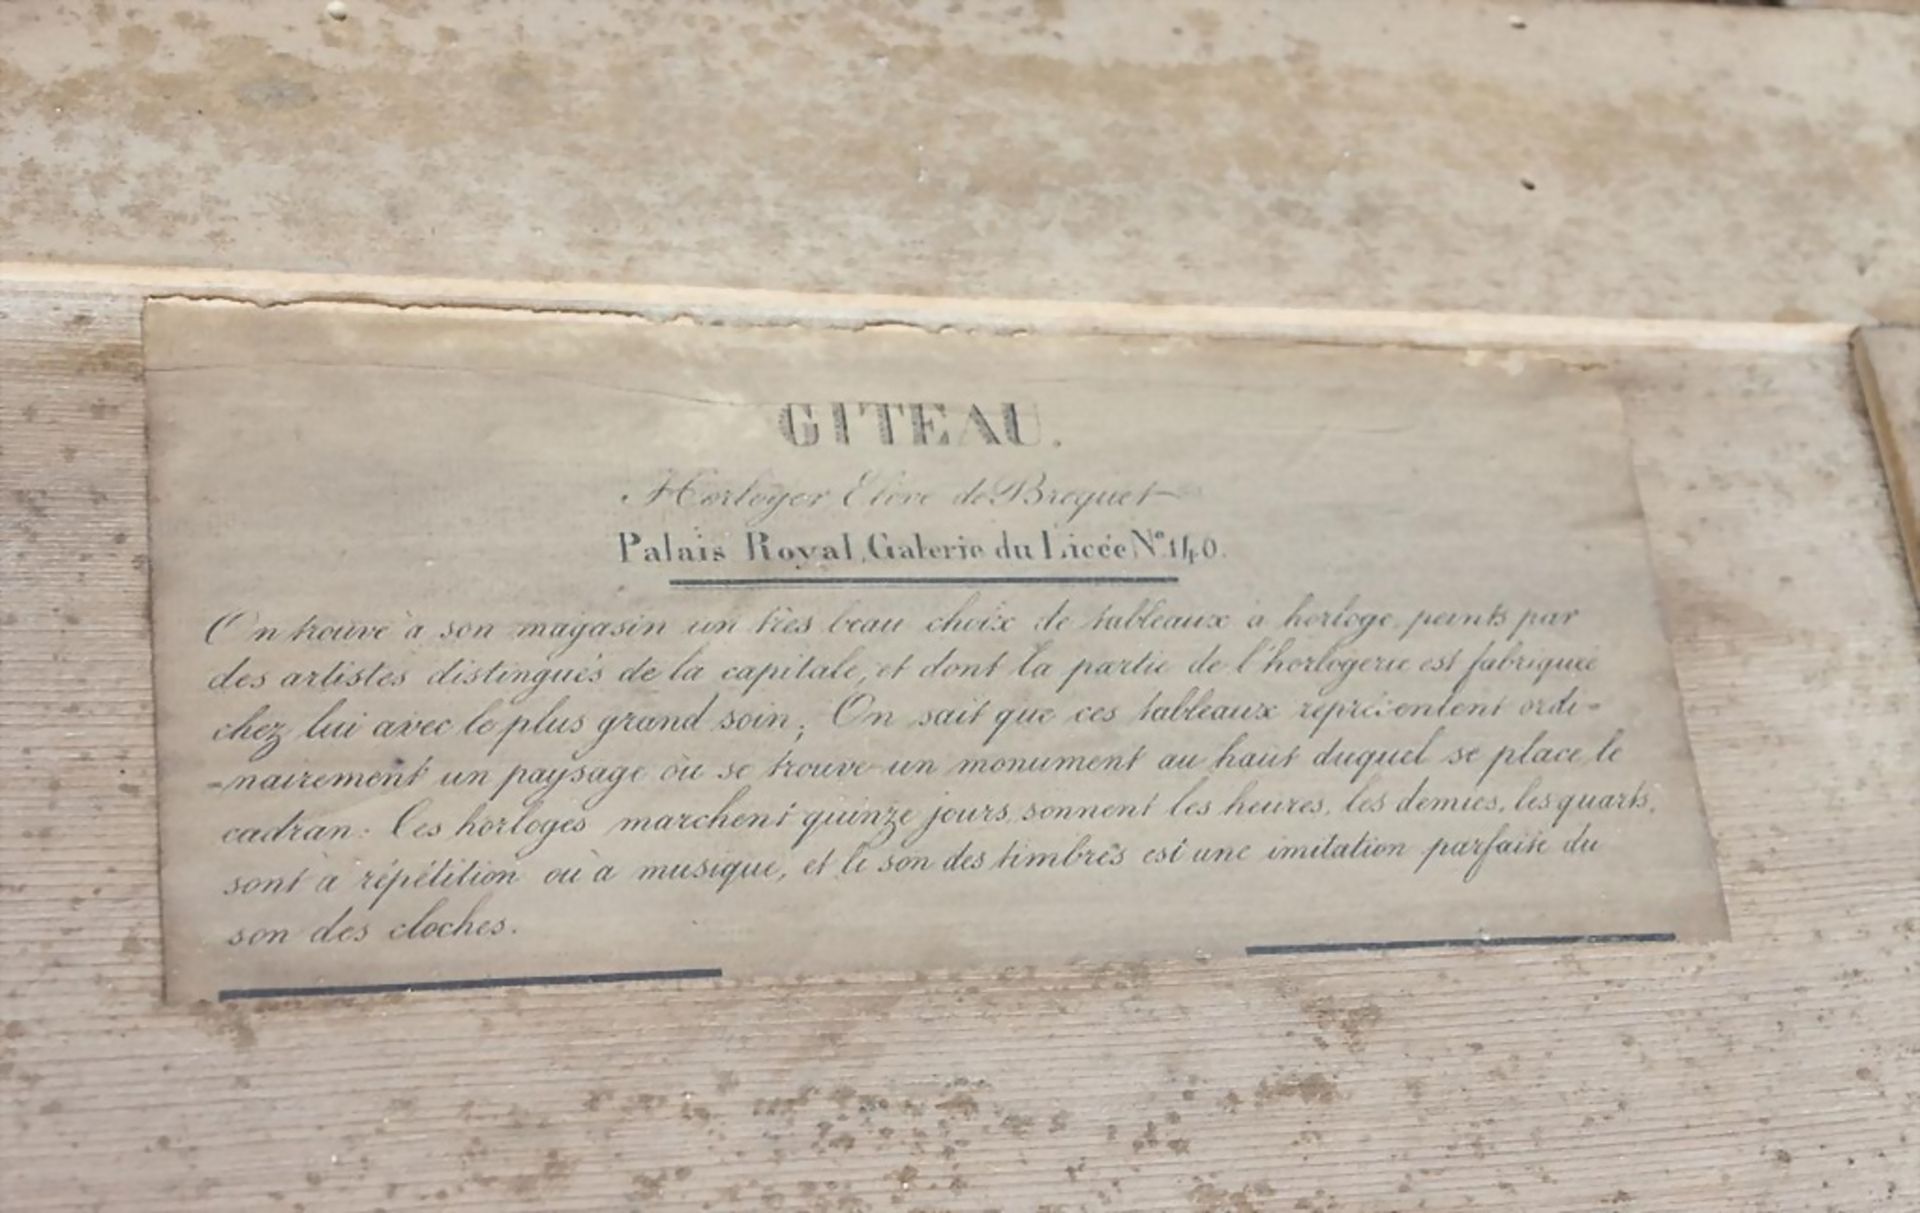 GITEAU.
Horloger Elève de Breguet
Palais Royal, Galerie du Licée N.º 140.
On trouve à son magasin un très beau choix de tableaux à horloge, peints par
des artistes distingués de la capitale, et dont la partie de l'horlogerie est fabriquée
chez lui avec le plus grand soin; On sait que ces tableaux représentent ordi-
-nairement un paysage où se trouve un monument au haut duquel se place le
cadran: Ces horloges marchent quinze jours, sonnent les heures, les demies, les quarts,
sont à répétition où à musique, et le son des timbres est une imitation parfaite du
son des cloches.